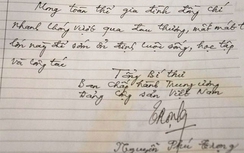 Mong toàn thể gia đình đồng chí
nhanh chóng vượt qua đau thương, mất mát
này để sớm ổn định cuộc sống, học tập
và công tác
Tổng Bí thư
Ban Chấp hành Trung ương
Đảng Cộng sản Việt Nam
Trọng
Nguyễn Phú Trọng